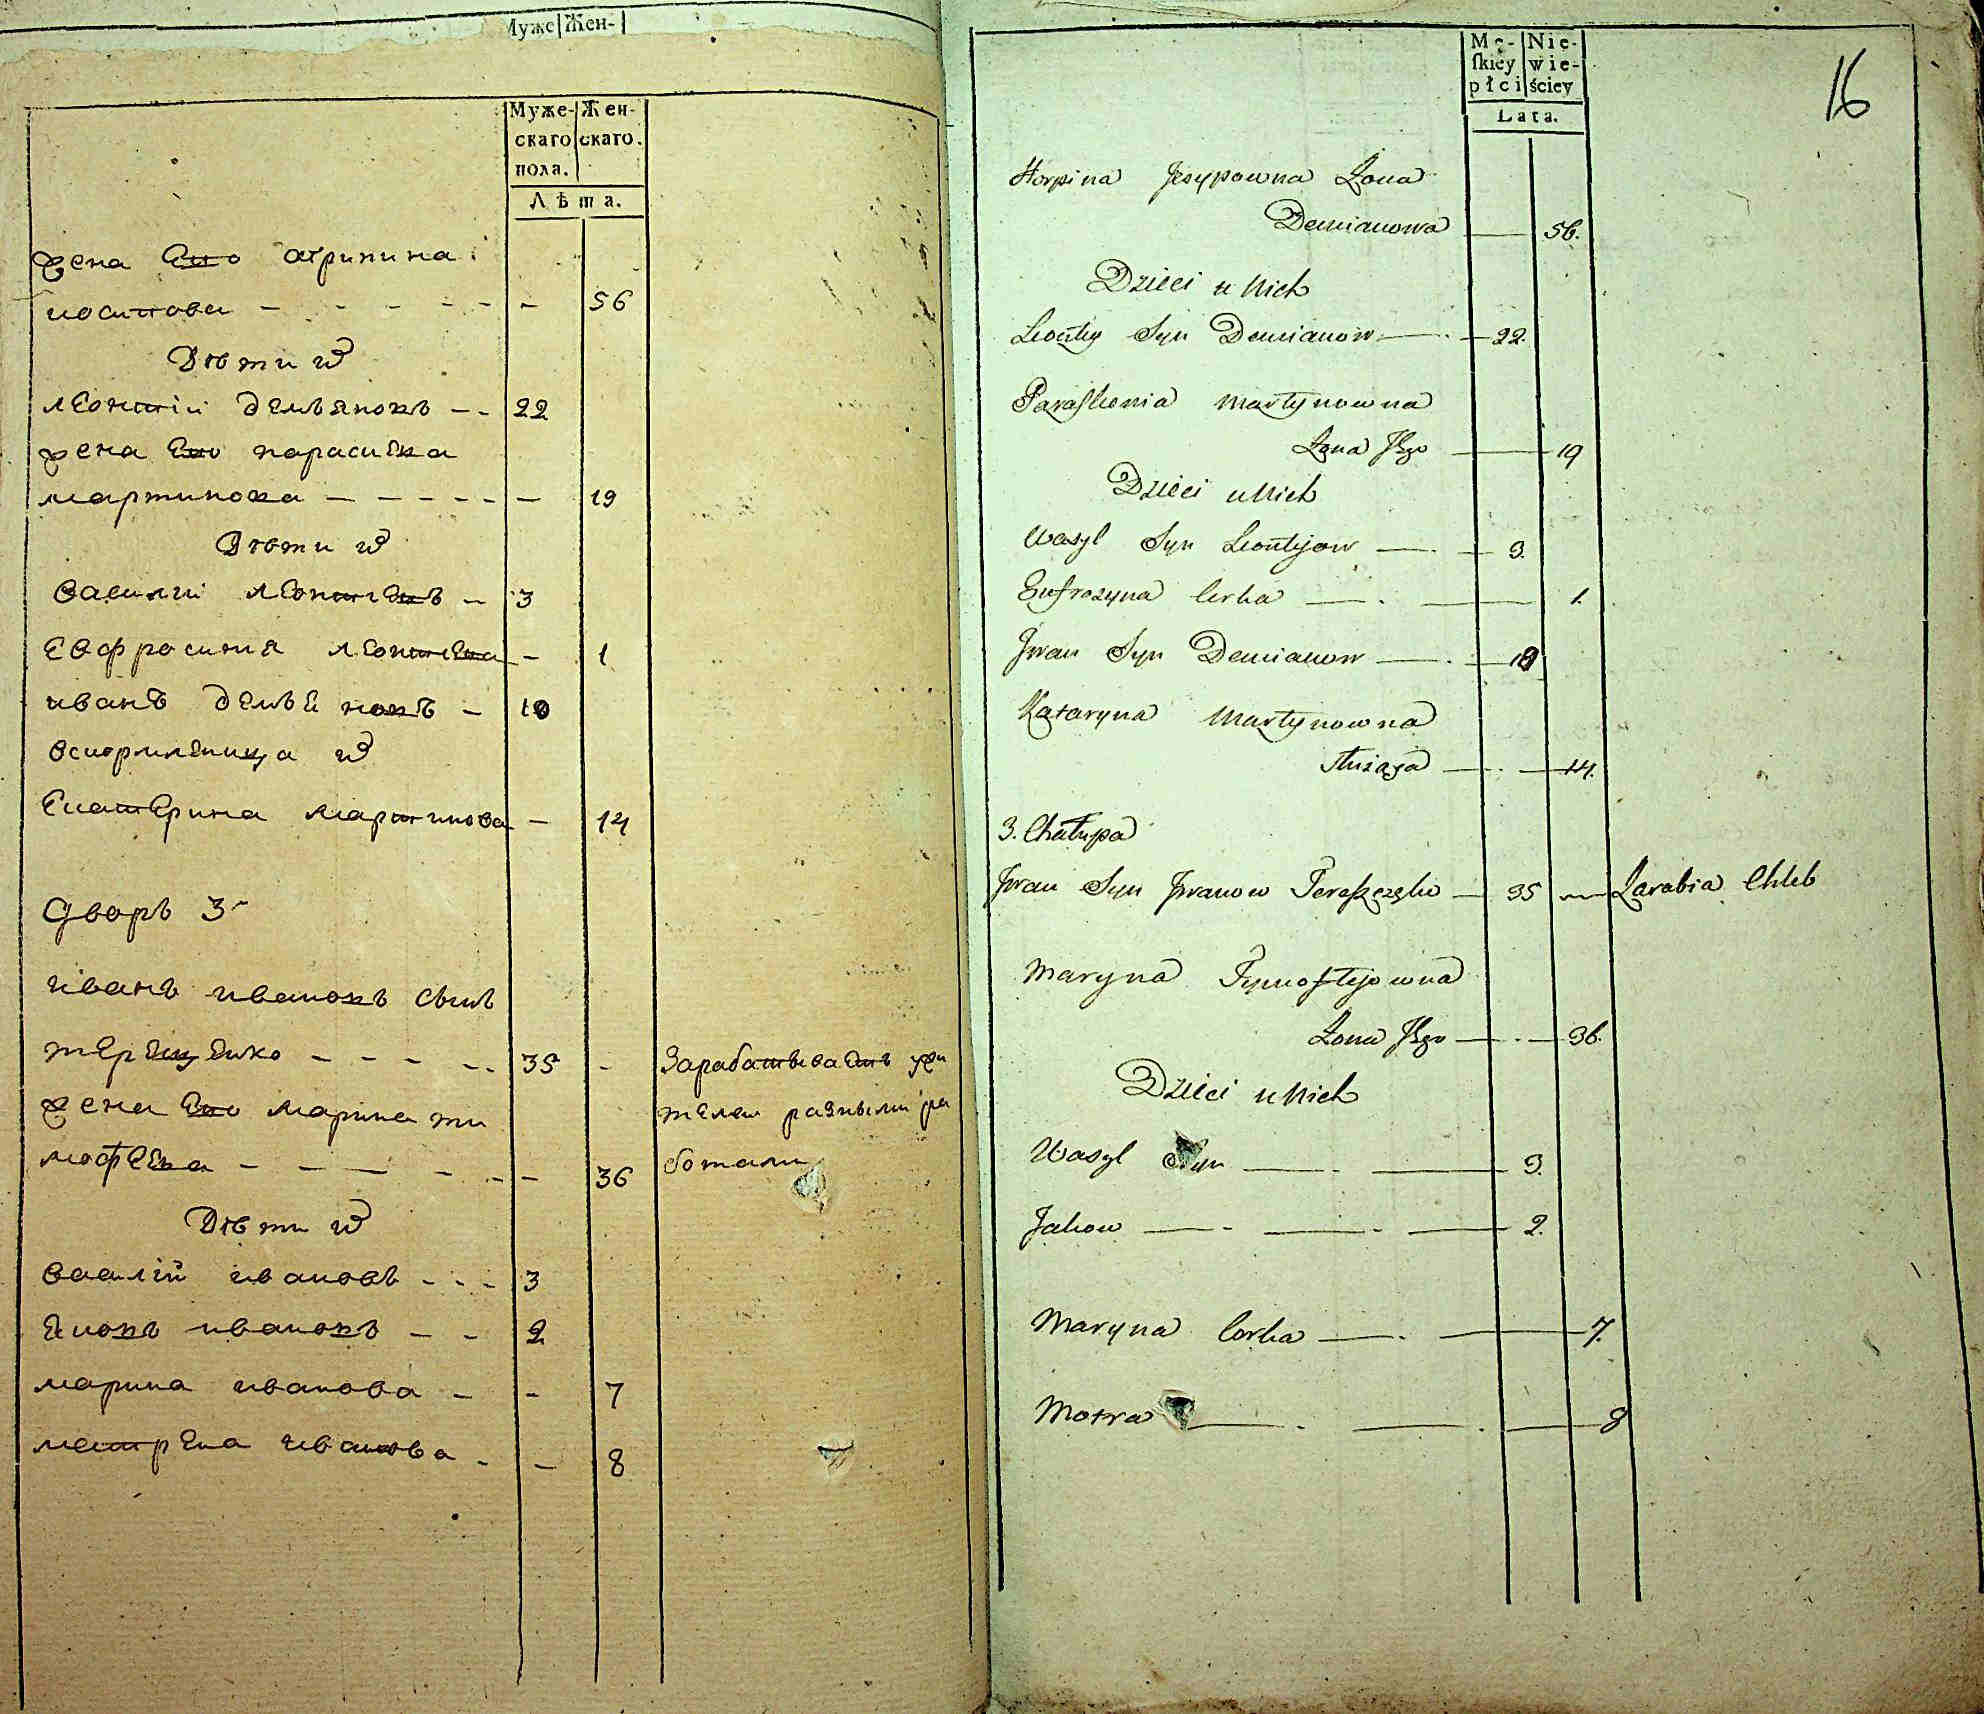 Муже Жен-
Муже- Жен-
скаго скаго.
пола.
Лѣта.
жена Его агрипина
иосипова - - - - - - - 56
Дѣти их
леонтій демьяновъ - - 22
жена Его парасева
мартинова - - - - - - 19
Дѣти их
василии леонтиевъ - 3
Евфросиния леонтиева - 1
иванъ демьяновъ - 10
вскормленица их
Екатерина мартинова - 14
Дворъ 3
иванъ ивановъ сынъ
терещенко - - - - - 35 - Зарабатываетъ у жи
жена Его марина ти телей разными ра
мофеева - - - - - - 36 ботами
Дѣти их
василій ивановъ - - - 3
яковъ ивановъ - - 2
марина иванова - - 7
мотрена иванова - - 8
Mę- Nie-
ſkiey wie-
płci ściey
Lata.
16
Horpina Jesypowna Żona
Demianowa — 56.
Dzieci u Nich
Leontiy Syn Demianow — 22.
Paraſkewia Martynowna
Żona Jego — 19
Dzieci u Nich
Wasyl Syn Leontyow — 3.
Eufrozyna Corka — 1.
Jwan Syn Demianow — 10
Kataryna Martynowna
służąca — 14.
3. Chałupa
Jwan Syn Jwanow Tereszczęko — 35 — Zarabia Chleb
Maryna Tymoſtejowna
Żona Jego — 36.
Dzieci u Nich
Wasyl Syn — 3.
Jakow — 2.
Maryna Corka — 7.
Motra — 8